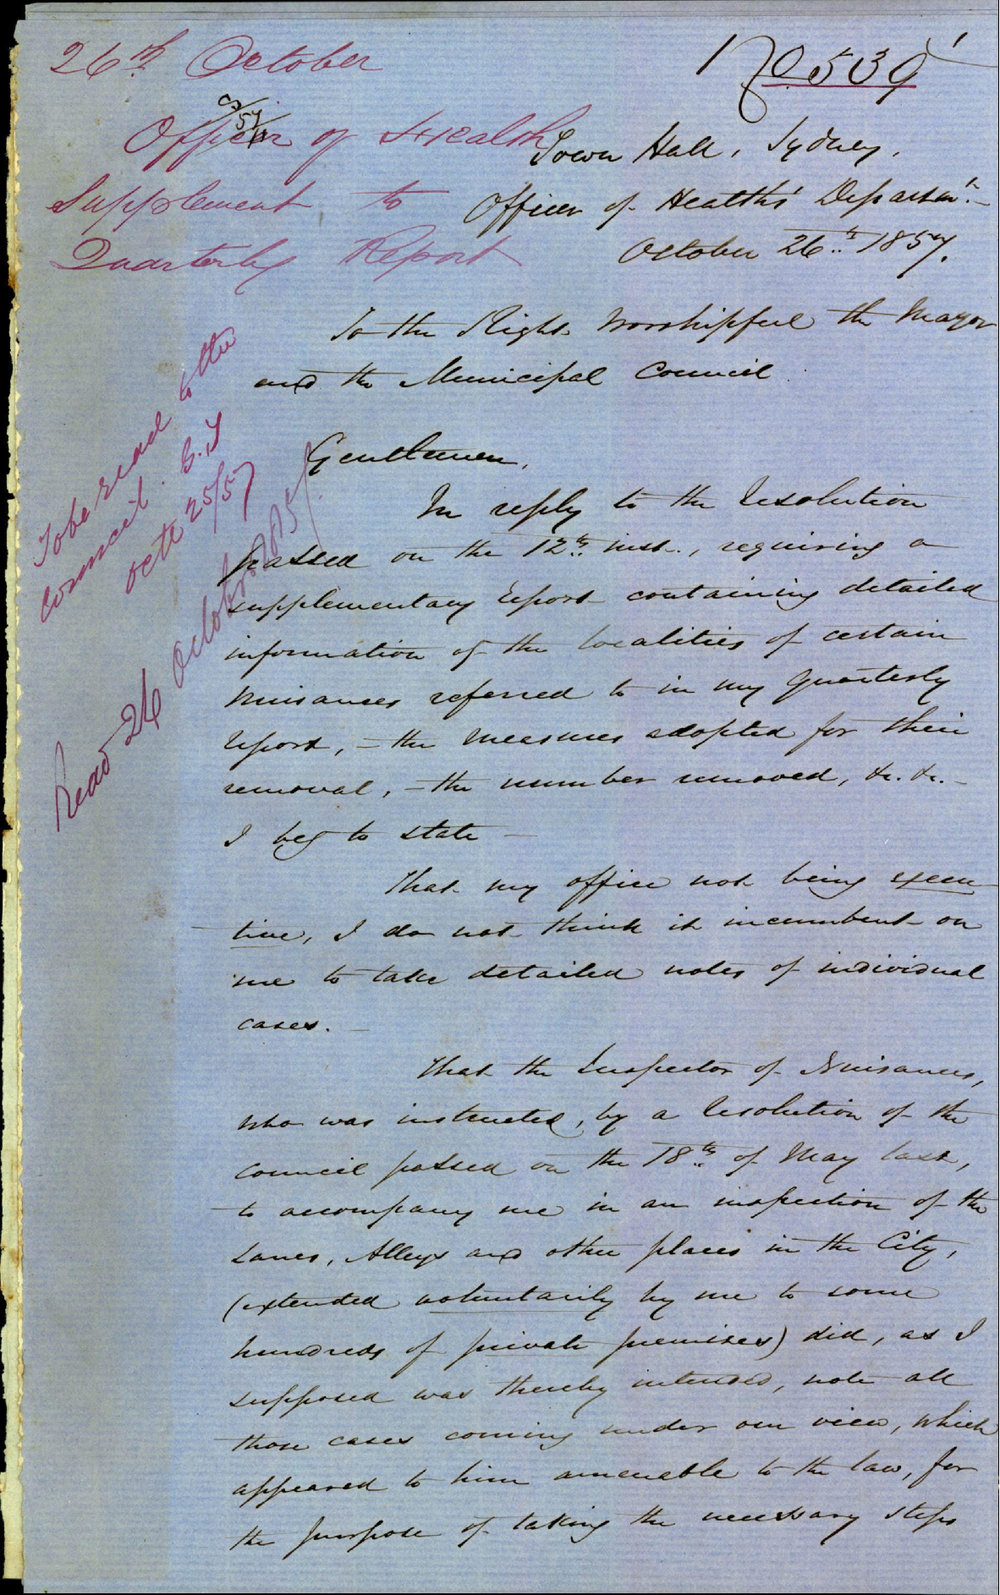 26th October
Officer of Health
Supplement to
Quarterly Report
No 539
Town Hall, Sydney,
Officer of Health's Departmt.
October 26th 1857.
To the Right Worshipful the Mayor
and the Municipal Council.
To be read to the
Council. G.T
Octr 25/57
Read 26 October 1857.
Gentlemen,
In reply to the Resolution
passed on the 12th inst., requiring a
supplementary report containing detailed
information of the localities of certain
nuisances referred to in my Quarterly
report, – the measures adopted for their
removal, – the number removed, &c. &c. –
I beg to state –
That my office not being execu
tive, I do not think it incumbent on
me to take detailed notes of individual
cases. –
That the Inspector of Nuisances,
who was instructed, by a resolution of the
Council passed on the 18th of May last,
to accompany me in an inspection of the
Lanes, Alleys and other places in the City,
(extended voluntarily by me to some
hundreds of private premises) did, as I
supposed was thereby intended, note all
those cases coming under our view, which
appeared to him amenable to the law, for
the purpose of taking the necessary steps